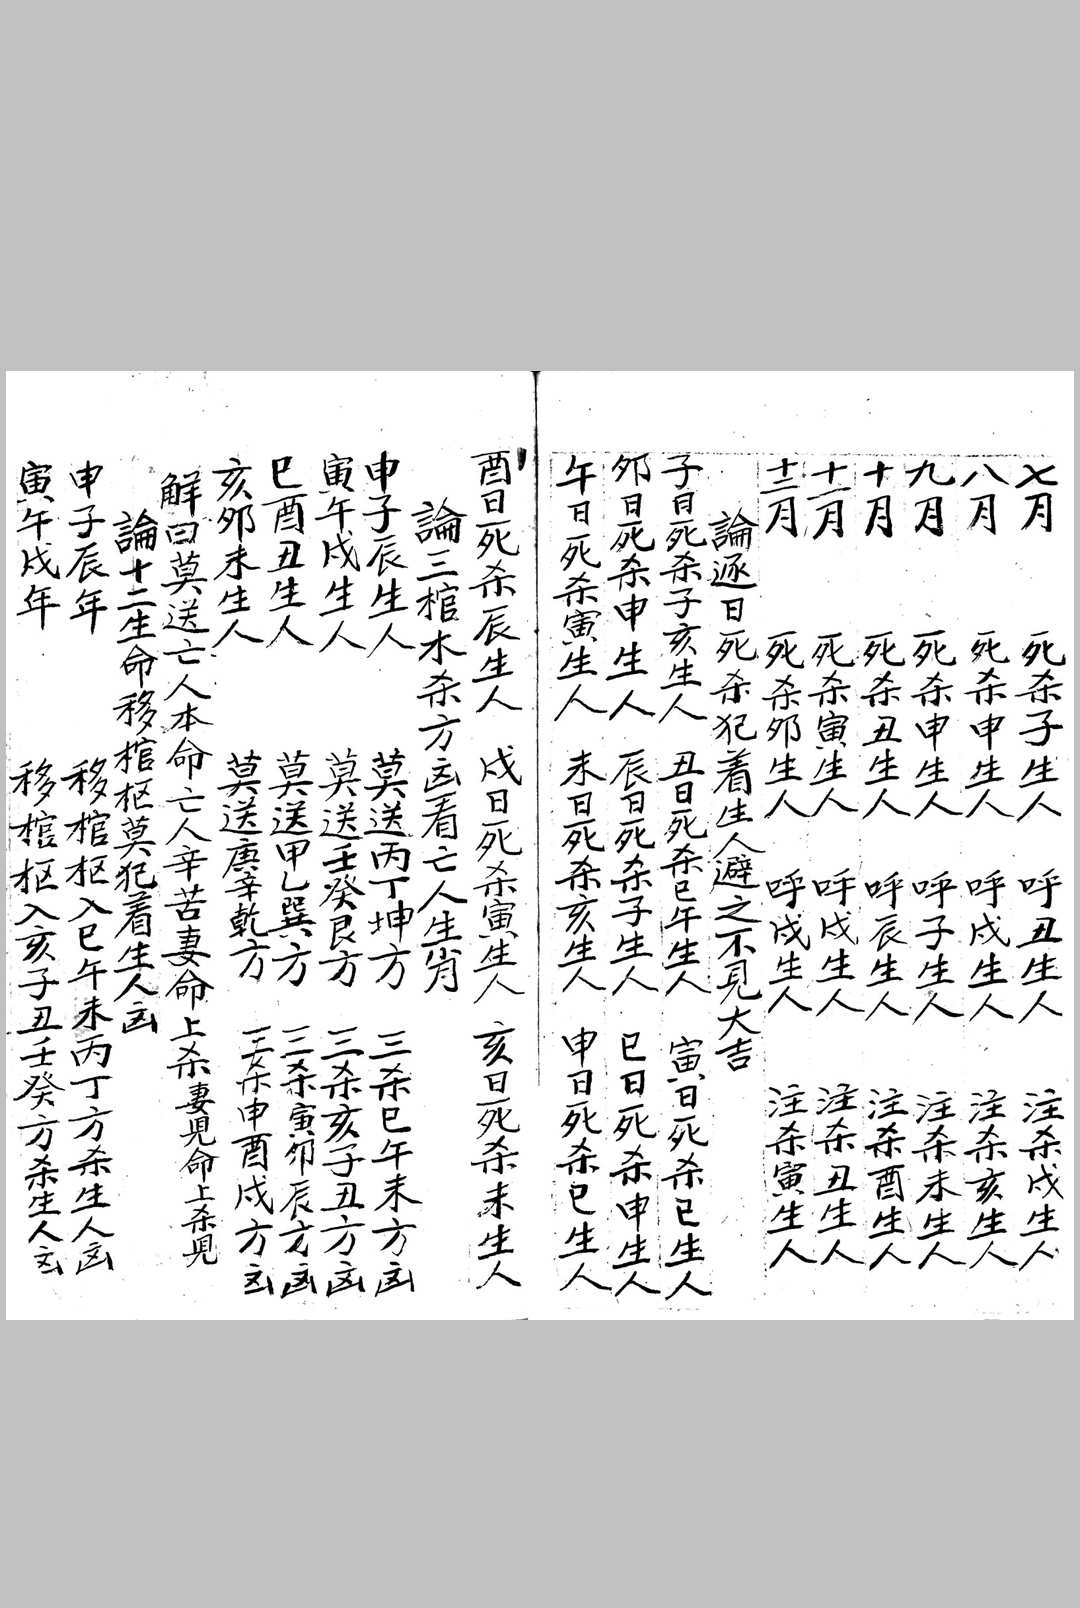 七月 死杀子生人 呼丑生人 注杀戌生人
八月 死杀申生人 呼戌生人 注杀亥生人
九月 死杀申生人 呼子生人 注杀未生人
十月 死杀丑生人 呼辰生人 注杀酉生人
十一月 死杀寅生人 呼戌生人 注杀丑生人
十二月 死杀卯生人 呼戌生人 注杀寅生人
論逐日死杀犯着生人避之不見大吉
子日死杀子亥生人 丑日死杀巳午生人 寅日死杀巳生人
卯日死杀申生人 辰日死杀子生人 巳日死杀申生人
午日死杀寅生人 未日死杀亥生人 申日死杀巳生人
酉日死杀辰生人 戌日死杀寅生人 亥日死杀未生人
論三棺木杀方凶看亡人生肖
申子辰生人 莫送丙丁坤方 三杀巳午未方凶
寅午戌生人 莫送壬癸艮方 三杀亥子丑方凶
巳酉丑生人 莫送甲乙巽方 三杀寅卯辰方凶
亥卯未生人 莫送庚辛乾方 三杀申酉戌方凶
解曰莫送亡人本命亡人辛苦妻命上杀妻児命上杀児
論十二生命移棺柩莫犯着生人凶
申子辰年 移棺柩入巳午未丙丁方杀生人凶
寅午戌年 移棺柩入亥子丑壬癸方杀生人凶